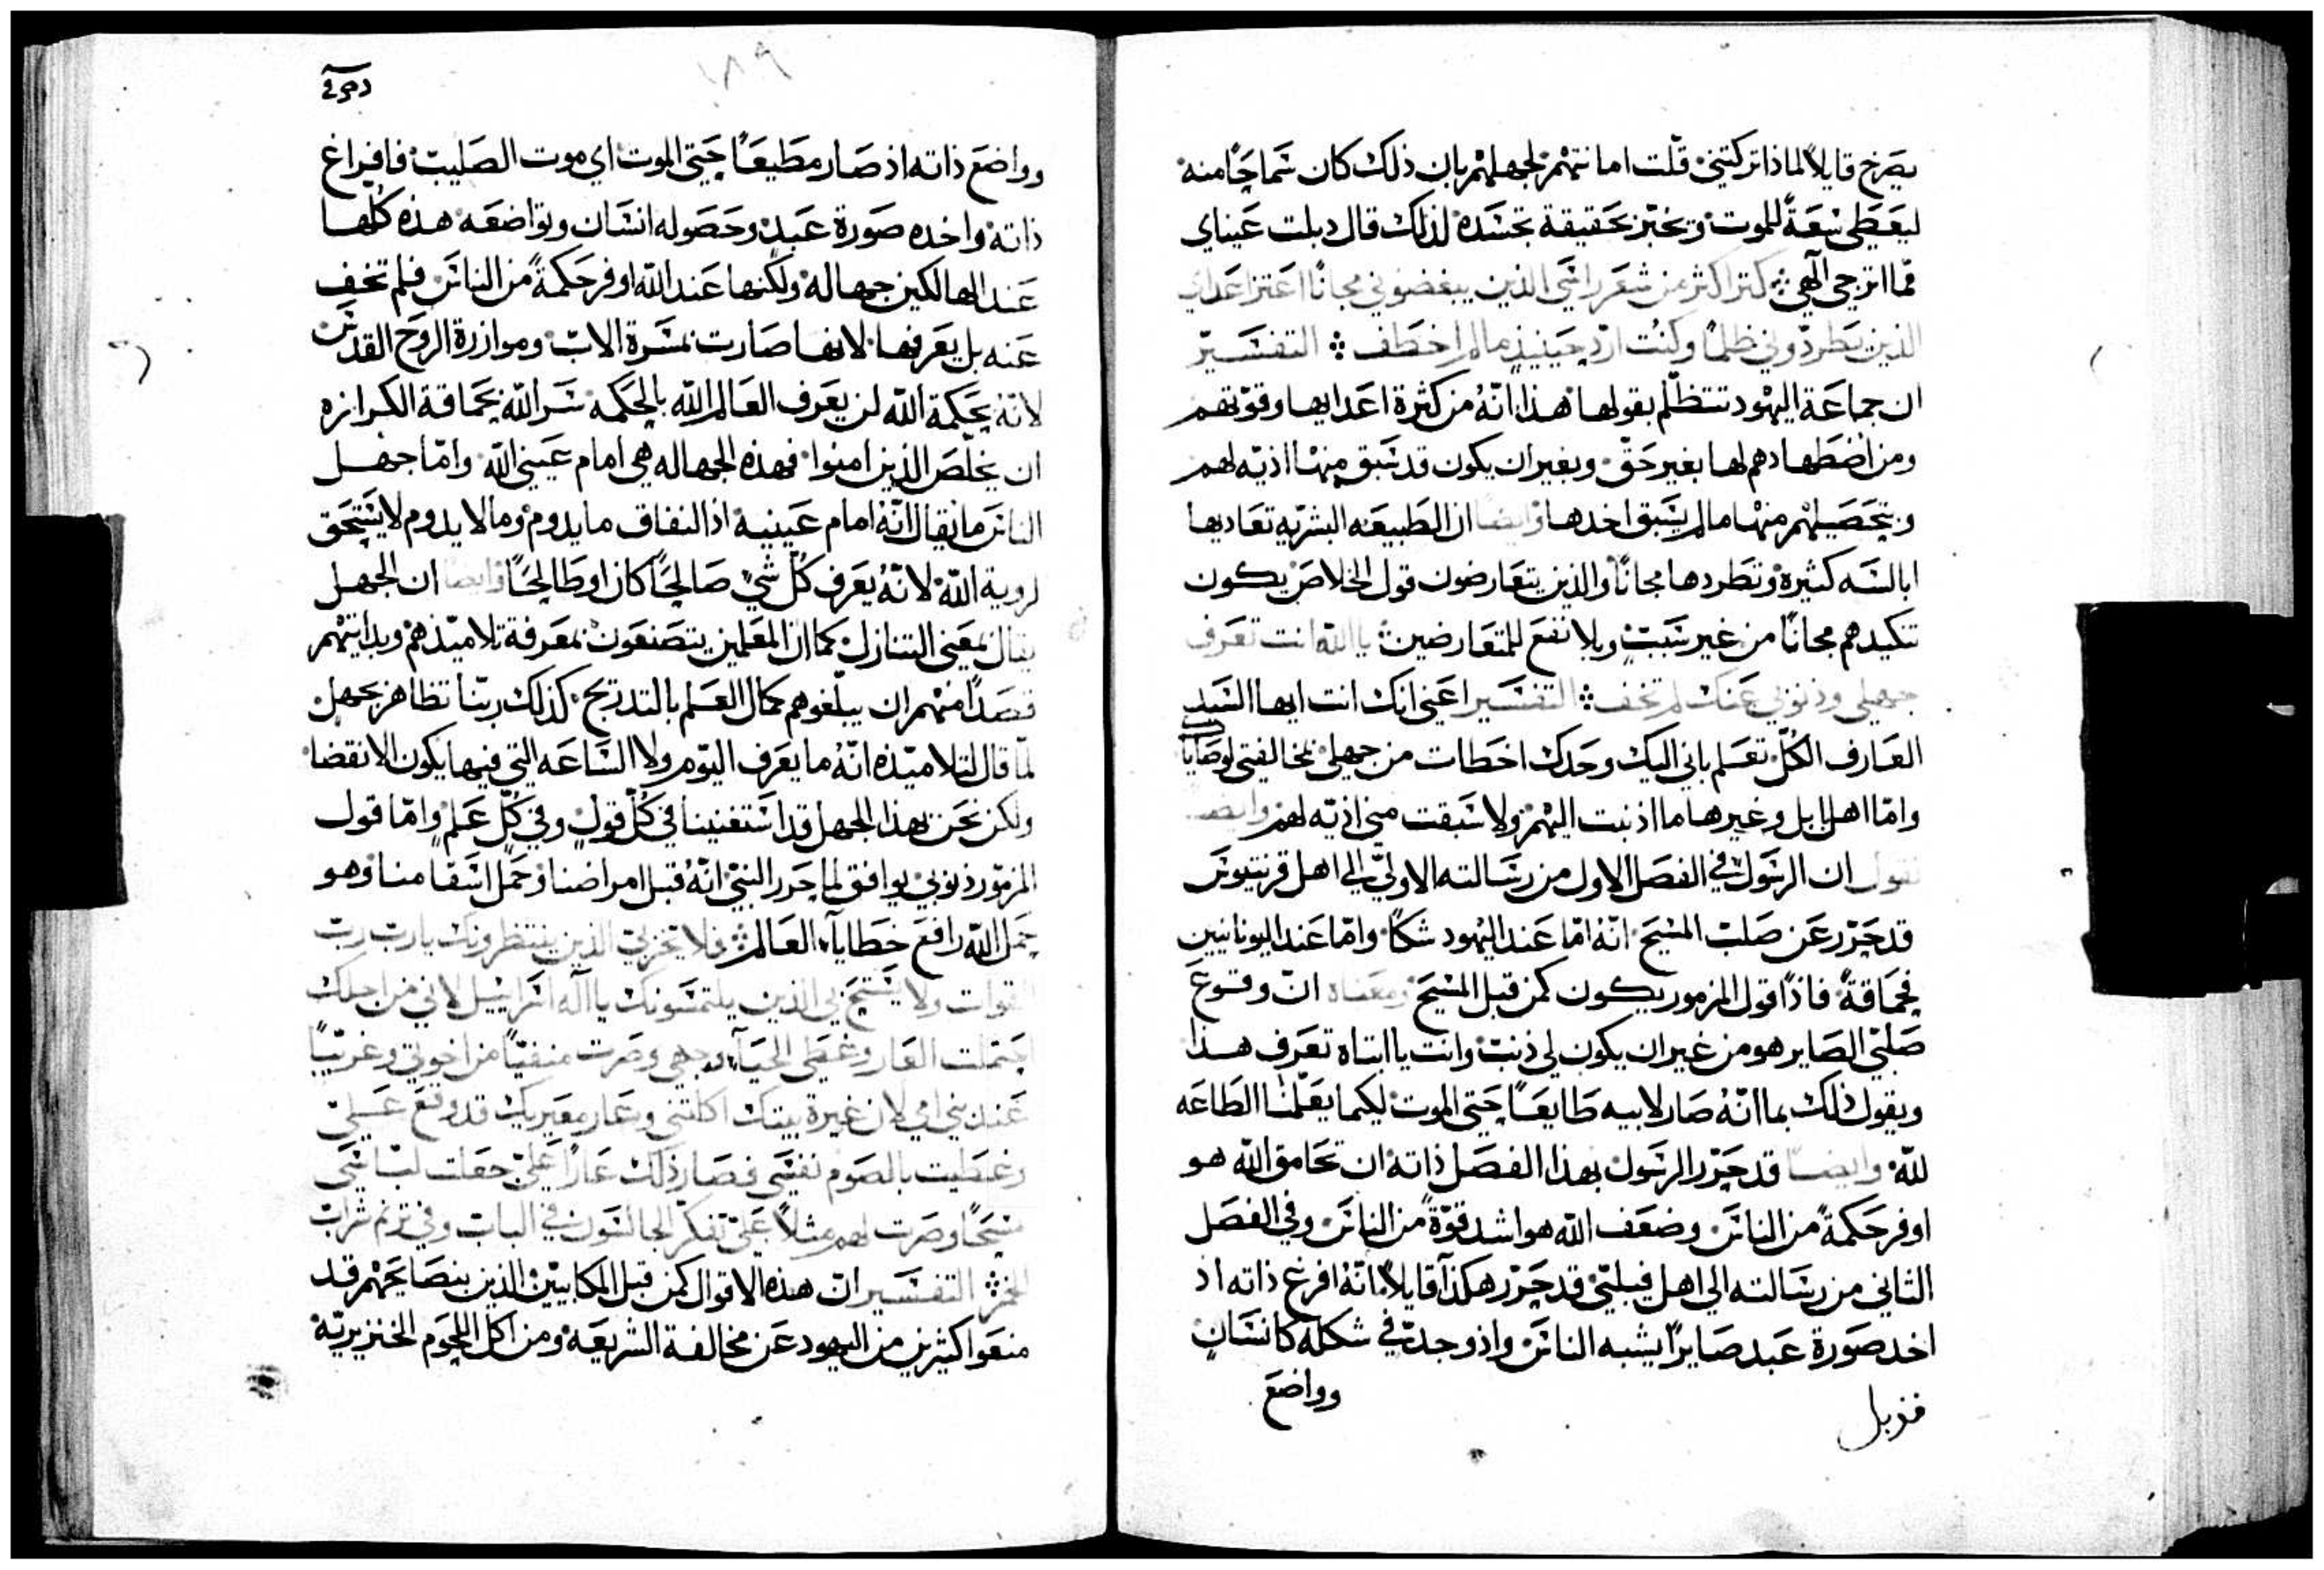 يصرخ قايلاً لماذا تركتني قلت اما نتهم لجهلهم بان ذلك كان سماحًا منه
ليعطي سعةً للموت وتختبر حقيقة تجسده لذلك قال دبلت عيناي
مما اترجي الٓهي ܀ كتر اكثر من شعر راسي الذين يبغضوني مجانًا اعتز اعداي
الذين يطردّوني ظلمًا وكنت اردّ حينيذٍ ما لم اخطف ܀ التفسير
ان جماعة اليهود تتظلّم بقولها هذا انّهُ من كثرة اعدايها وقوّتهم
ومن اضطهادهم لها بغير حقّ وبغير ان يكون قد سبق منها اذيّه لهم
وبتحصيلهم منها ما لم يسبق اخدها وايضًا ان الطبيعه البشريّه تعاديها
ابالسه كثيرة وتطردها مجانًا والذين يتعارضون قول الخلاص يكون
تنكيدهم مجانًا من غير سبب وبلا نفع للمتعارضين ܀ يا اللّه انت تعرف
جهلي وذنوبي عنك لم تخف ܀ التفسير اعني انك انت ايها السيد
العارف الكلّ تعلم باني اليك وحدك اخطات من جهلي بمخالفتي لوصاياك
وامّا اهل بابل وغيرها ما اذنبت اليهم ولا سبقت مني اذيّه لهم وايضًا
نقول ان الرسول في الفصل الاول من رسالته الاولي الي اهل قرنتيوس
قد حرّر عن صلب المسيح انّه امّا عند اليهود شكًا وامّا عند اليونانيين
فحماقةً فاذًا قول المزمور يكون كمن قبل المسيح ومعناه ان وقوع
صلبي الصاير هو من غير ان يكون لي ذنب وانت يا ابتاه تعرف هذا
ويقول ذلك بما انّهُ صار لابيه طايعًا حتي الموت لكيما يعلّمنا الطاعه
للّه وايضًا قد حرّر الرسول بهذا الفصل ذاته ان تحامق اللّه هو
اوفر حكمةً من الناس وضعف اللّه هو اشد قوّةً من الناس وفي الفصل
الثاني من رسالته الي اهل فيلبي قد حرّر هكذا قايلاً انّهُ افرغ ذاته اذ
اخد صورة عبد صايرًا يشبه الناس واذ وجد في شكله كانسان
وواضع
وواضع ذاته اذ صار مطيعًا حتي الموت اي موت الصليب فافراغ
ذاته واخده صورة عبد وحصوله انسان وتواضعه هذه كلها
عند الهالكين جهاله ولكنها عند اللّه اوفر حكمةً من الناس فلم تخف
عنه بل يعرفها لانها صارت بمسرة الاب وموازرة الروح القدس
لانّه بحكمة اللّه لن يعرف العالم اللّه بالحكمه سر اللّه بحماقة الكرازه
ان يخلّص الذين امنوا فهذه الجهاله هي امام عيني اللّه وامّا جهل
الناس ما يقال انّهُ امام عينيه اذ النفاق ما يدوم وما لا يدوم لا يستحق
لروية اللّه لانّهُ يعرف كلّ شي صالحًا كان او طالحًا وايضًا ان الجهل
يقال بمعني التنازل كما ان المعلمين يتصنعون بمعرفة تلاميذهم وبدايتهم
قصدًا منهم ان يبلّغوهم كمال العلم بالتدريج كذلك ربّنا تظاهر بجهل
لمّا قال لتلاميذه انّهُ ما يعرف اليوم ولا الساعه التي فيها يكون الانقضا
ولكن نحن بهذا الجهل قد استغنينا في كلّ قول وفي كلّ علم وامّا قول
المزمور ذنوبي يوافق لما حرر النبي انّهُ قبل امراضنا وحمل اسقامنا وهو
حمل اللّه رافع خطايا العالم ܀ فلا يخزي بي الذين ينتظرونك يا رب رب
القوات ولا يستحي بي الذين يلتمسونك يا اله اسراييل لاني من اجلك
احتملت العار وغطي الحيا وجهي وصرت منفيًا من اخوتي وغريبًا
عند بني امي لان غيرة بيتك اكلتني وعار معيريك قد وقع علي
وغطيت بالصوم نفسي فصار ذلك عارًا علي جعلت لباسي
مسحًا وصرت لهم مثلاً علي تفكر الجالسون في الباب وفي ترنم شراب
الخمر ܀ التفسير ان هذه الاقوال كمن قبل المكابيين الذين بنصايحهم قد
منعوا كثيرين من اليهود عن مخالفة الشريعه ومن اكل اللحوم الخنزيريّة